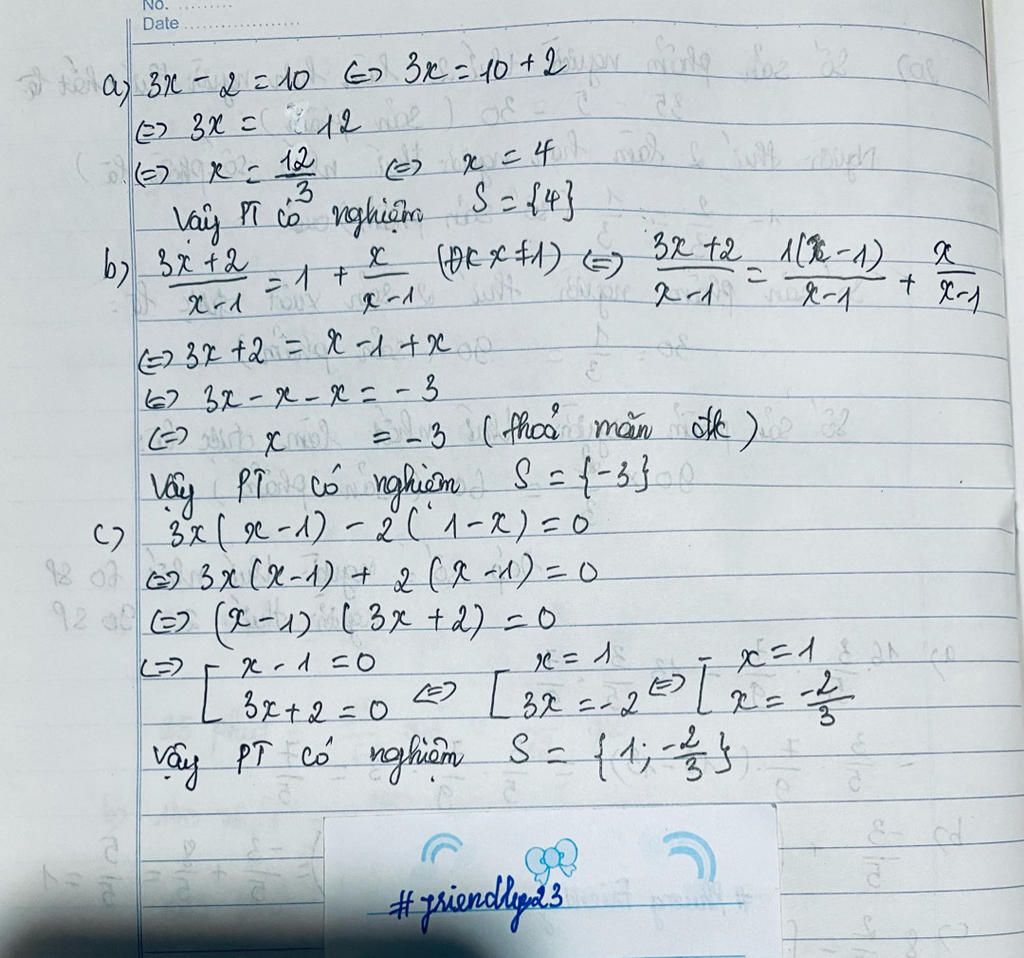 No. .........
Date ....................
a) 3x - 2 = 10 <=> 3x = 10 + 2
<=> 3x = 12
<=> x = 12/3 <=> x = 4
Vậy PT có nghiệm S = {4}
b) (3x+2)/(x-1) = 1 + x/(x-1) (ĐK x ≠ 1) <=> (3x+2)/(x-1) = 1(x-1)/(x-1) + x/(x-1)
<=> 3x + 2 = x - 1 + x
<=> 3x - x - x = - 3
<=> x = - 3 (thoả mãn đk)
Vậy PT có nghiệm S = {-3}
c) 3x(x-1) - 2(1-x) = 0
<=> 3x(x-1) + 2(x-1) = 0
<=> (x-1)(3x+2) = 0
<=> [ x - 1 = 0 <=> [ x = 1 <=> [ x = 1
3x + 2 = 0 3x = -2 x = -2/3
Vậy PT có nghiệm S = {1; -2/3}
#friendly23